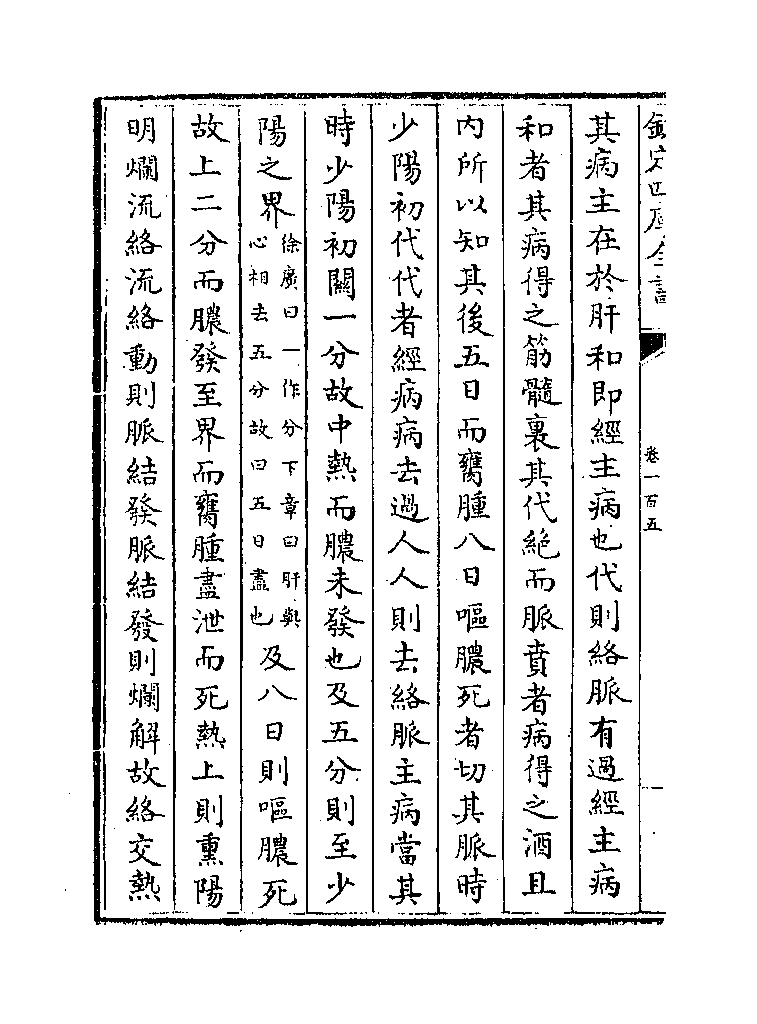 欽定四庫全書
卷一百五
其病主在於肝和即經主病也代則絡脈有過經主病
和者其病得之筋髓裏其代絶而脈賁者病得之酒且
內所以知其後五日而癰腫八日嘔膿死者切其脈時
少陽初代代者經病病去過人人則去絡脈主病當其
時少陽初關一分故中熱而膿未發也及五分則至少
陽之界徐廣曰一作分下章曰肝與心相去五分故曰五日盡也及八日則嘔膿死
故上二分而膿發至界而癰腫盡泄而死熱上則熏陽
明爛流絡流絡動則脈結發脈結發則爛解故絡交熱